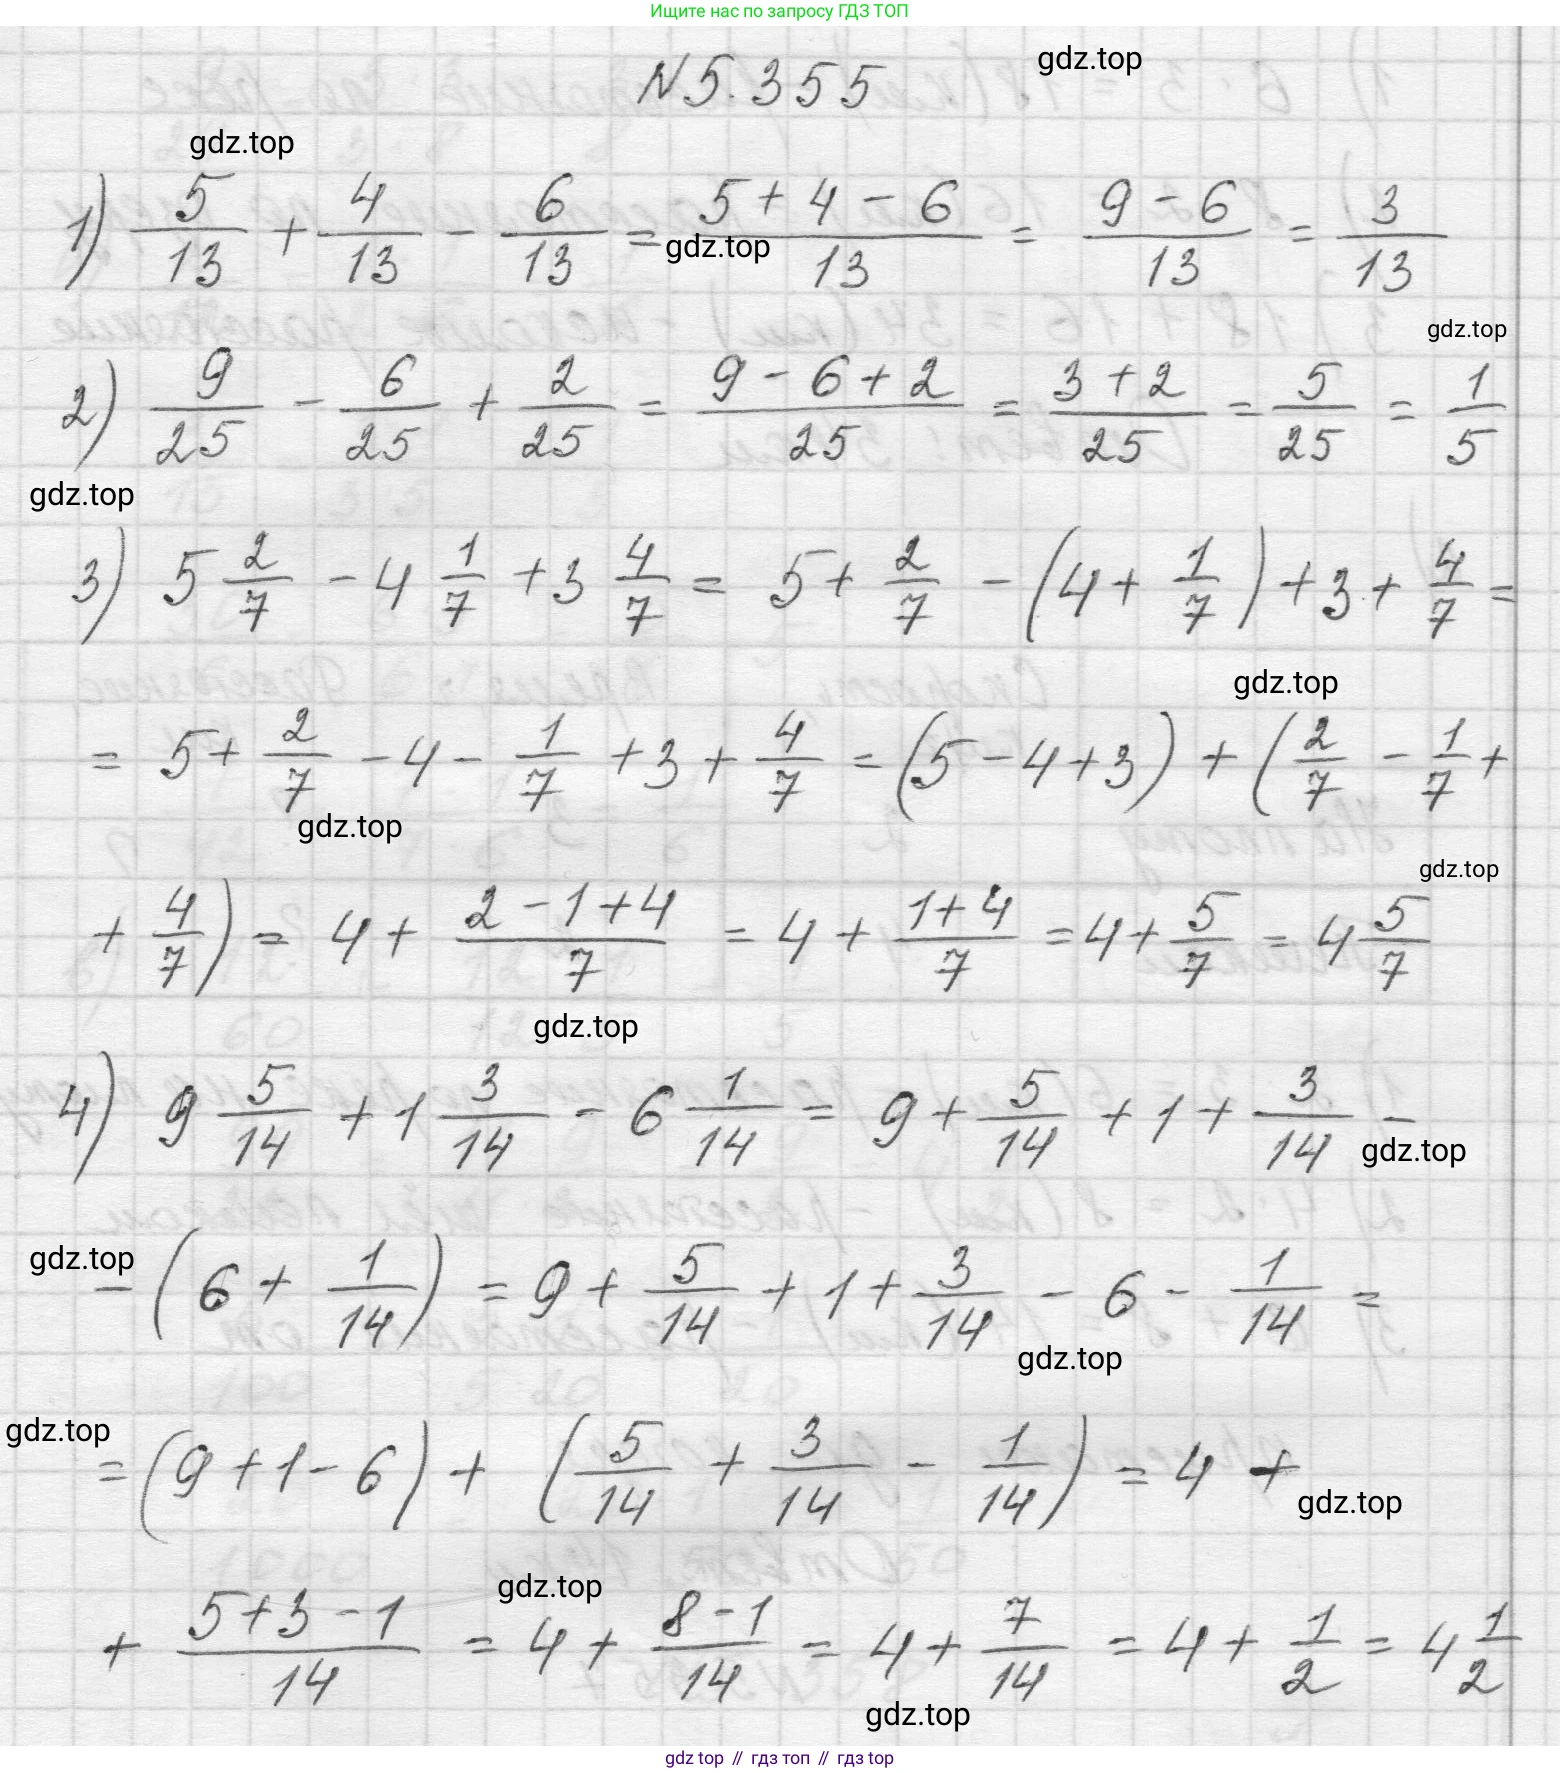 Ищите нас по запросу ГДЗ ТОП
gdz.top
N 5.355
gdz.top
1) 5/13 + 4/13 - 6/13 = (5+4-6)/13 = (9-6)/13 = 3/13
gdz.top
gdz.top
2) 9/25 - 6/25 + 2/25 = (9-6+2)/25 = (3+2)/25 = 5/25 = 1/5
gdz.top
3) 5 2/7 - 4 1/7 + 3 4/7 = 5 + 2/7 - (4 + 1/7) + 3 + 4/7 =
gdz.top
= 5 + 2/7 - 4 - 1/7 + 3 + 4/7 = (5-4+3) + (2/7 - 1/7 +
gdz.top
gdz.top
+ 4/7) = 4 + (2-1+4)/7 = 4 + (1+4)/7 = 4 + 5/7 = 4 5/7
gdz.top
4) 9 5/14 + 1 3/14 - 6 1/14 = 9 + 5/14 + 1 + 3/14 -
gdz.top
gdz.top
- (6 + 1/14) = 9 + 5/14 + 1 + 3/14 - 6 - 1/14 =
gdz.top
gdz.top
= (9+1-6) + (5/14 + 3/14 - 1/14) = 4 +
gdz.top
gdz.top
+ (5+3-1)/14 = 4 + (8-1)/14 = 4 + 7/14 = 4 + 1/2 = 4 1/2
gdz.top
gdz top // гдз топ // гдз top